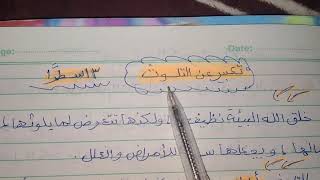 Date:
تعبير عن التلوث
٣ اسطر
خلق الله البيئة نظيفة ولكنها تتعرض لما يلوثها
ويجعلها للأمراض والعلل